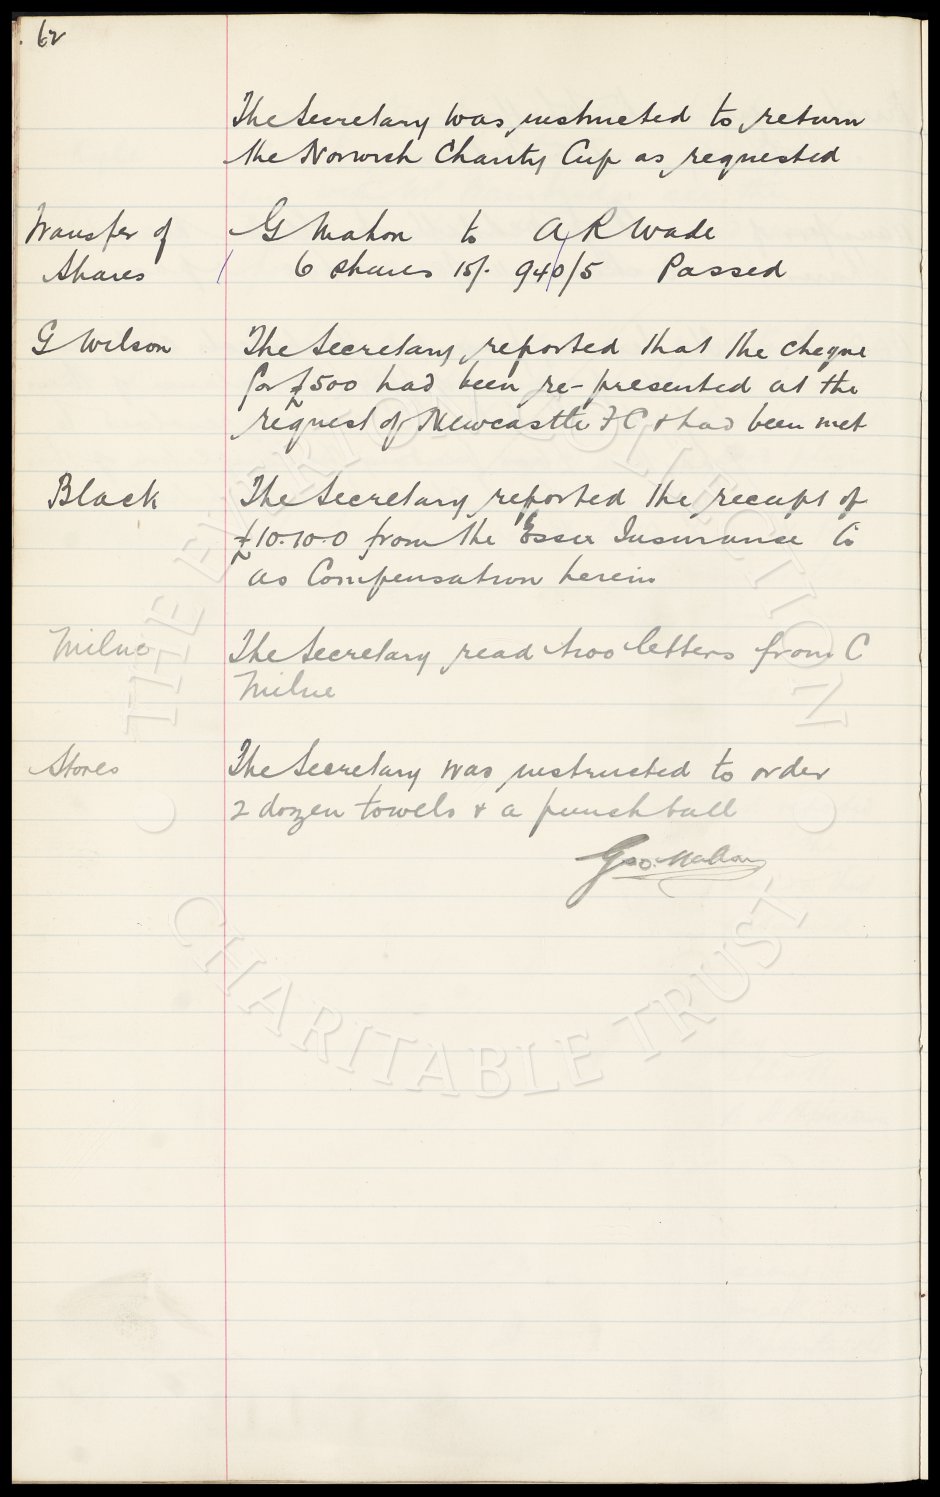 62
The Secretary was instructed to return
the Norwich Charity Cup as requested
Transfer of G Mahon to A R Wade
Shares 6 shares 15/- 940/5 Passed
G Wilson The Secretary reported that the cheque
for £500 had been re-presented at the
request of Newcastle F C & had been met
Black The Secretary reported the receipt of
£10.10.0 from the Essex Insurance Co
as Compensation herein
Milne The Secretary read two letters from C
Milne
Stores The Secretary was instructed to order
2 dozen towels & a punch ball
Geo. Mahon
THE EVERTON COLLECTION
CHARITABLE TRUST